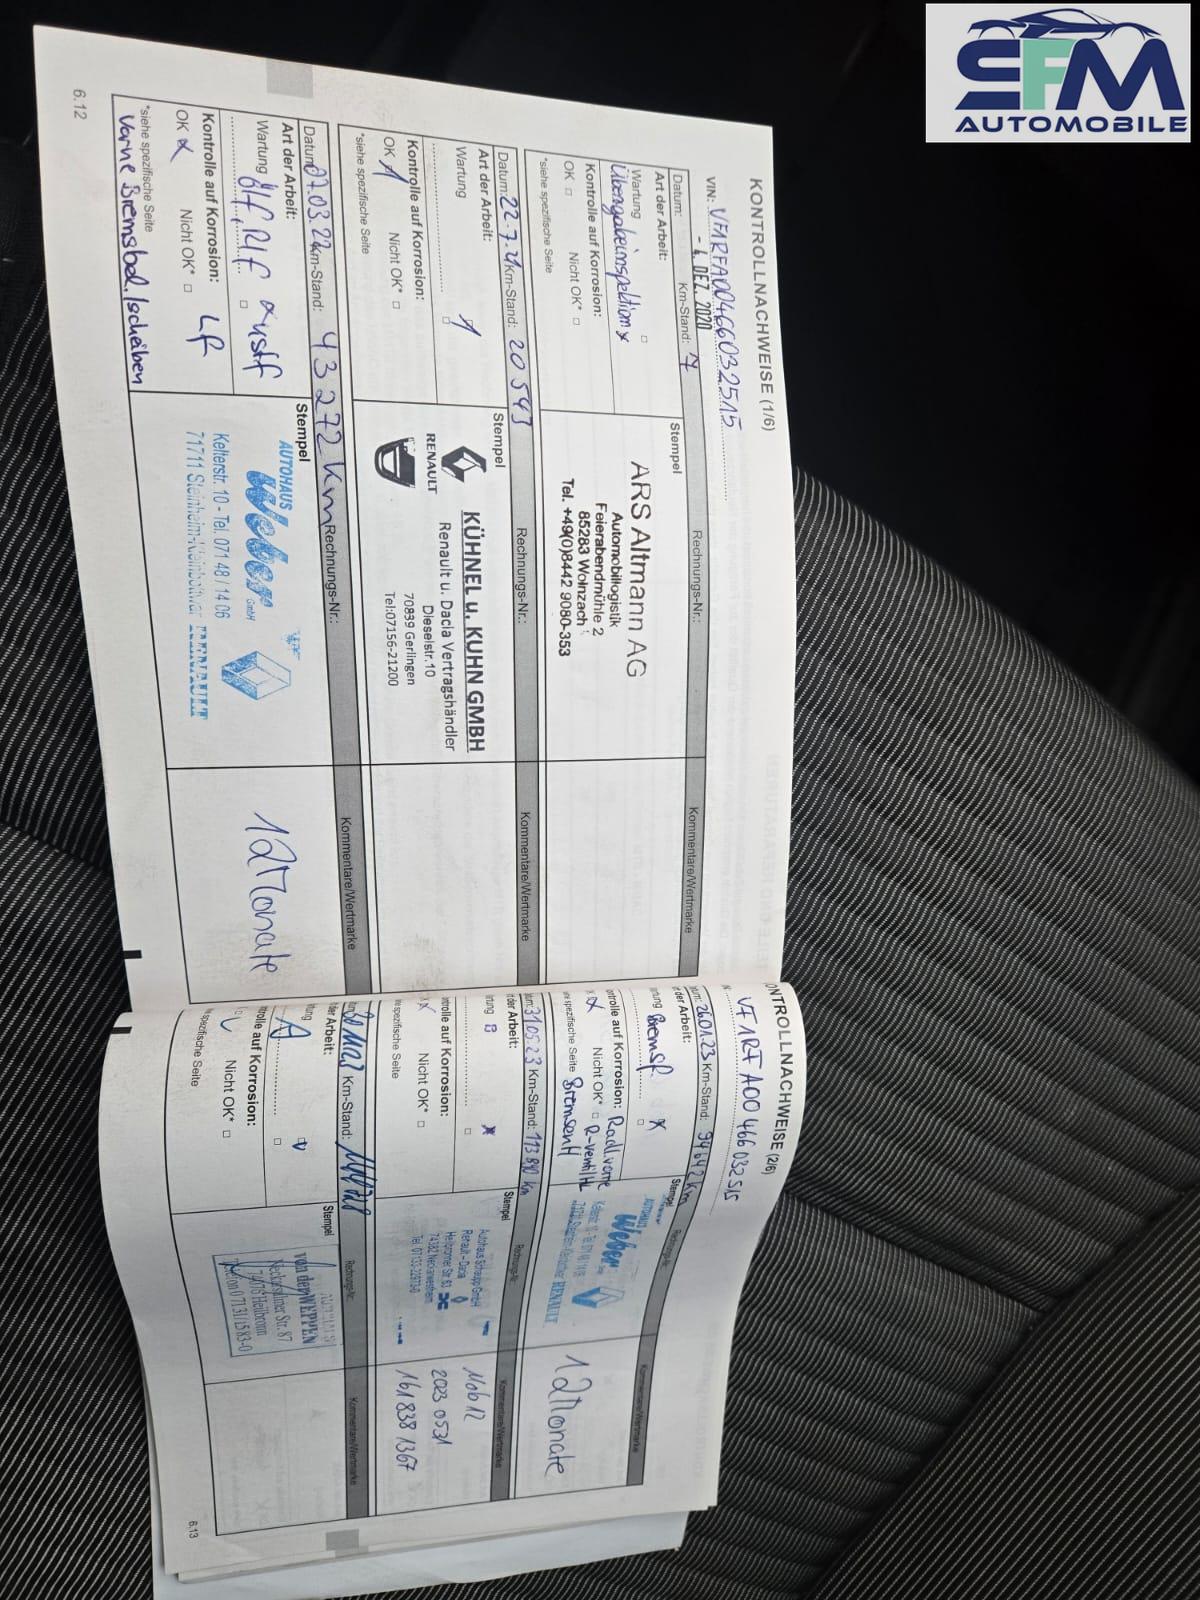 SFM
AUTOMOBILE
KONTROLLNACHWEISE (1/6)
VIN: VF1RFA00466032515
Datum: - 4. DEZ. 2020 Km-Stand: 7 Rechnungs-Nr.: Kommentare/Wertmarke
Art der Arbeit: Stempel
Wartung
Übergabeinspektion x
Kontrolle auf Korrosion:
OK □ Nicht OK* □
*siehe spezifische Seite
ARS Altmann AG
Automobillogistik
Feierabendmühle 2
85283 Wolnzach
Tel. +49(0)8442 9080-353
Datum: 22.7.21 Km-Stand: 20 543 Rechnungs-Nr.: Kommentare/Wertmarke
Art der Arbeit: Stempel
Wartung
Kontrolle auf Korrosion:
OK Nicht OK* □
*siehe spezifische Seite
RENAULT
KÜHNEL u. KUHN GMBH
Renault u. Dacia Vertragshändler
Dieselstr.10
70839 Gerlingen
Tel:07156-21200
Datum: 07.03.22 Km-Stand: 43 272 Km Rechnungs-Nr.: Kommentare/Wertmarke
Art der Arbeit: Stempel
Wartung
Kontrolle auf Korrosion:
OK x Nicht OK* □
*siehe spezifische Seite
Vorne Bremsbel./scheiben
AUTOHAUS
Weber GmbH
Kelterstr. 10 - Tel. 071 48 / 14 06
71711 Steinheim-Kleinbottwar RENAULT
12 Monate
6.12
ONTROLLNACHWEISE (2/6)
VF1RFA00466032515
um: 26.01.23 Km-Stand: 94642 Km Rechnungs-Nr.: Kommentare/Wertmarke
t der Arbeit: Stempel
artung Bremsf. x
ntrolle auf Korrosion: Radl. vorne
Nicht OK* □
he spezifische Seite Bremsen H
AUTOHAUS
Weber
RENAULT
12 Monate
um: 31.05.23 Km-Stand: 113 890 Km Rechnungs-Nr.: Kommentare/Wertmarke
t der Arbeit: Stempel
rtung B
ntrolle auf Korrosion:
x Nicht OK* □
he spezifische Seite
Renault - Dacia
Heilbronner Str. 83
74382 Neckarwestheim
Mob 12
2023 0531
161 838 1367
Km-Stand: Rechnungs-Nr.: Kommentare/Wertmarke
der Arbeit: Stempel
rtung A
trolle auf Korrosion:
Nicht OK* □
spezifische Seite
von der WEPPEN
Neckarsulmer Str. 87
74076 Heilbronn
Telefon 0 71 31/15 83-0
6.13